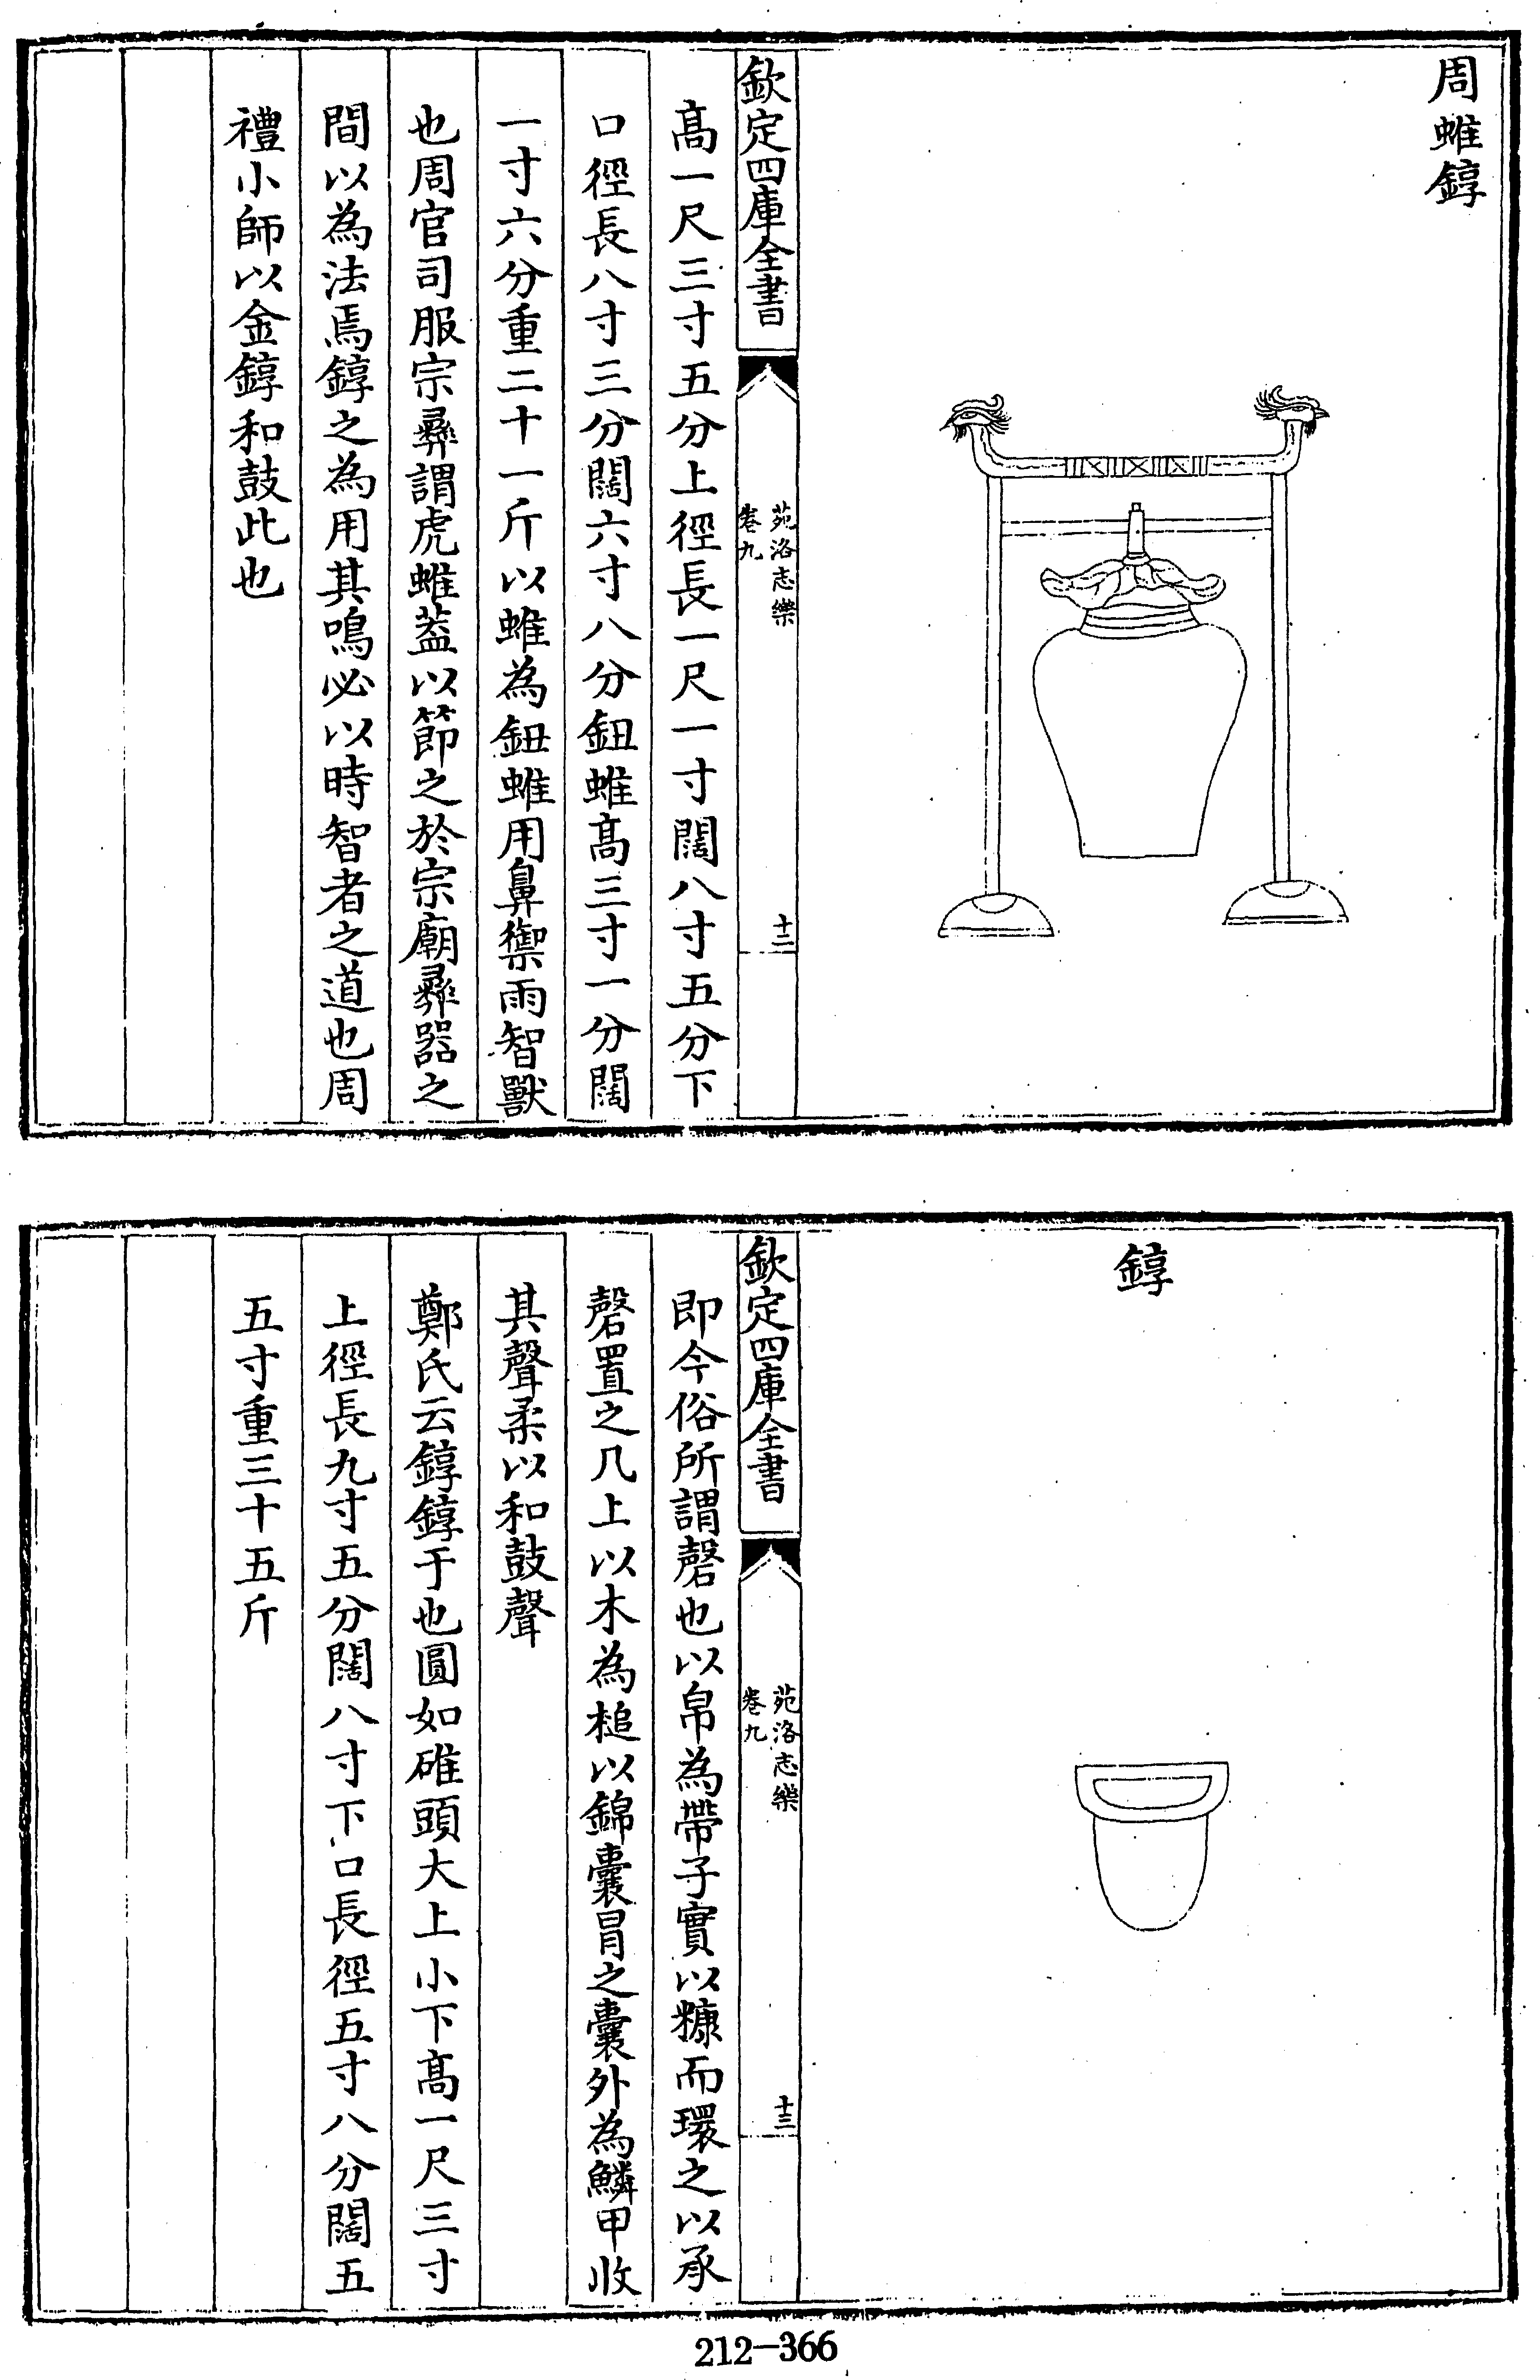 周蜼錞
欽定四庫全書
苑洛志樂
卷九
十二
高一尺三寸五分上徑長一尺一寸闊八寸五分下
口徑長八寸三分闊六寸八分鈕蜼高三寸一分闊
一寸六分重二十一斤以蜼為鈕蜼用鼻禦雨智獸
也周官司服宗彞謂虎蜼葢以節之於宗廟彞器之
間以為法焉錞之為用其鳴必以時智者之道也周
禮小師以金錞和鼓此也
錞
欽定四庫全書
苑洛志樂
卷九
十三
即今俗所謂磬也以帛為帶子實以糠而環之以承
磬置之几上以木為槌以錦囊冒之囊外為鱗甲收
其聲柔以和鼓聲
鄭氏云錞錞于也圓如碓頭大上小下高一尺三寸
上徑長九寸五分闊八寸下口長徑五寸八分闊五
五寸重三十五斤
212-366